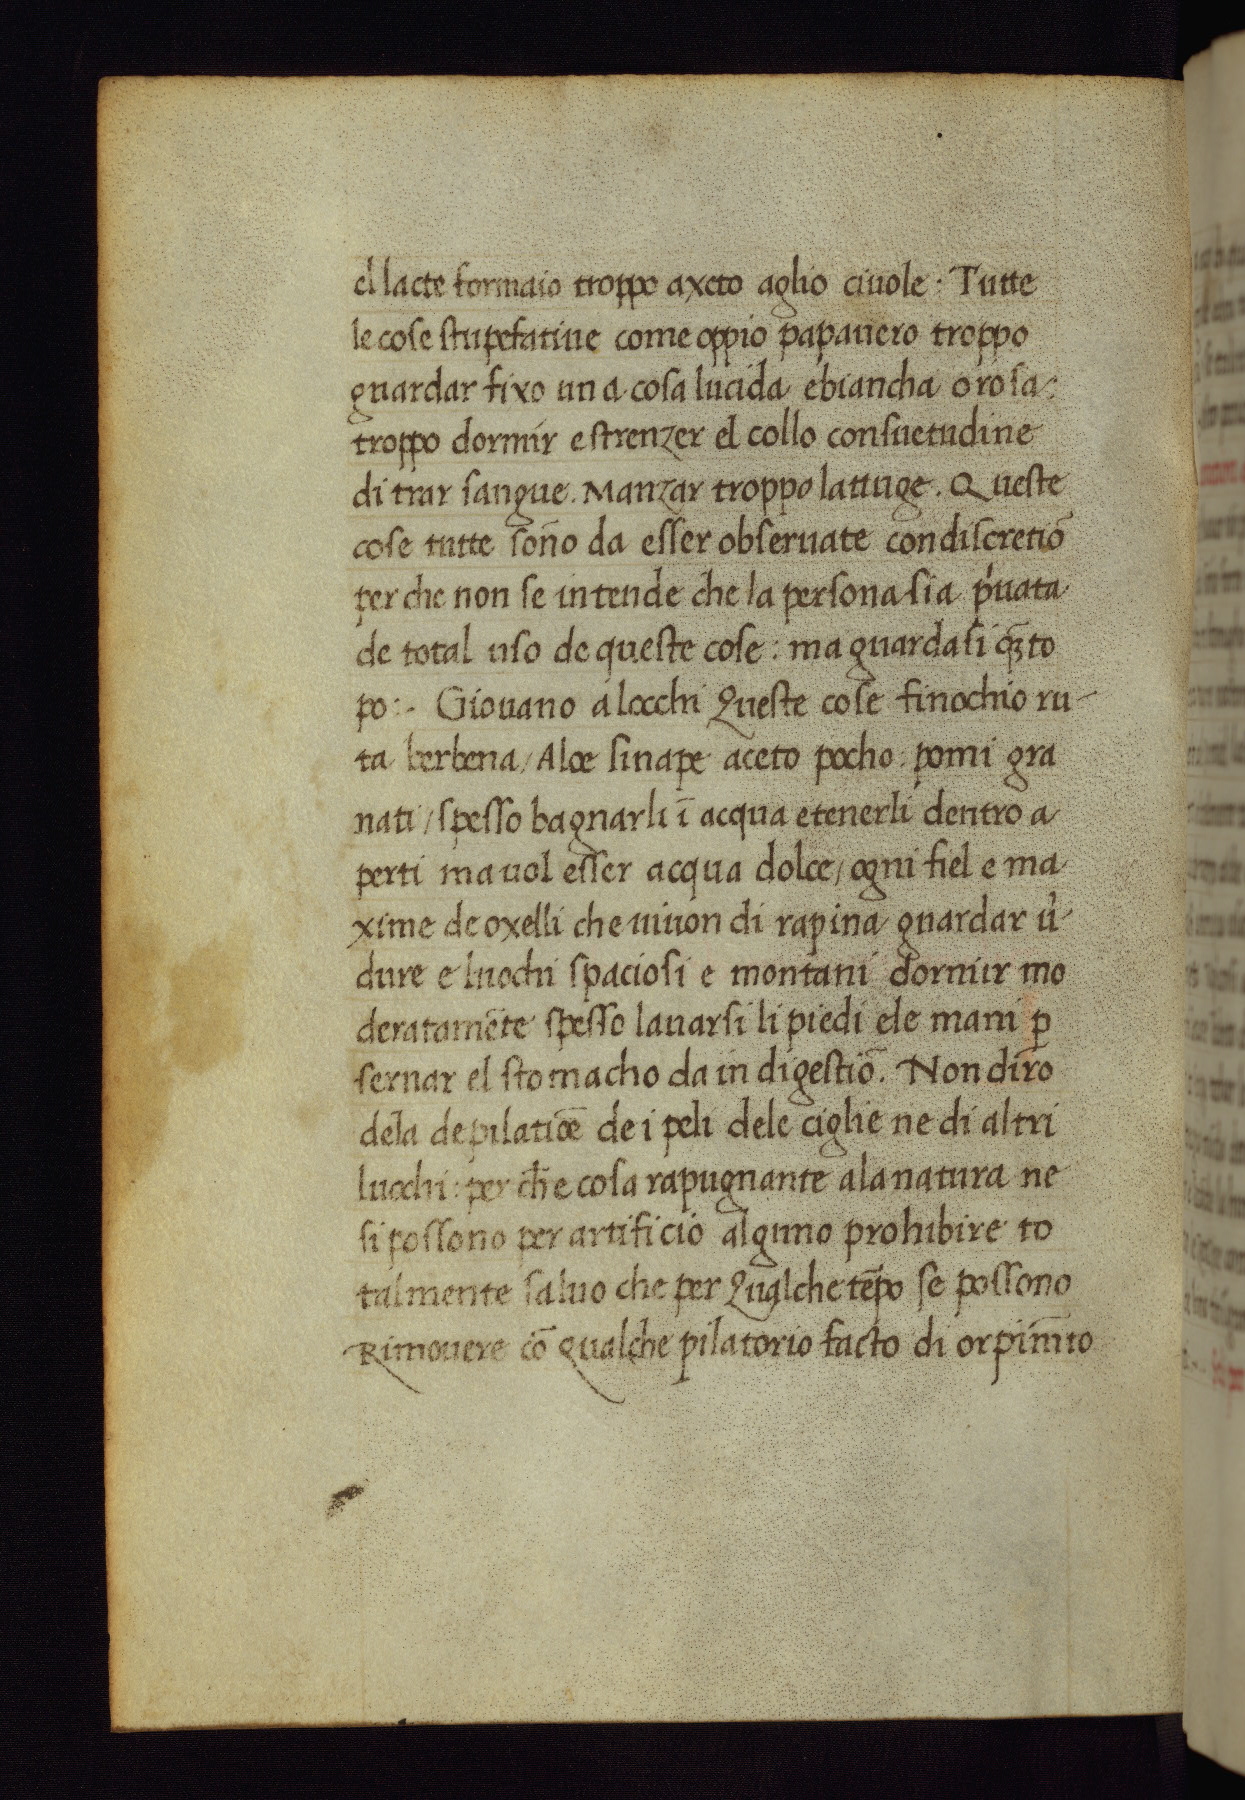 el lacte formaio troppo axeto aglio ciuole : Tutte
le cose stupefatiue come oppio papauero troppo
guardar fixo una cosa lucida ebiancha o rosa :
troppo dormir e strenzer el collo consuetudine
di trar sangue . Manzar troppo latuge . Queste
cose tutte soño da esser obseruate con discretiō
per che non se intende che la persona sia p͛uata
de total uso de queste cose : ma guardasi q̃to
po :- Giouano a locchi Queste cose finochio ru-
ta berbena / Aloe sinape aceto pocho : pomi gra
nati / spesso bagnarli ī acqua e tenerli dentro a
perti ma uol esser acqua dolce / ogni fiel e ma
xime de oxelli che uiuon di rapina guardar u͛
dure e luochi spaciosi e montani dormir mo
deratamēte spesso lauarsi li piedi ele mani ꝑ
seruar el stomacho da indigestiō . Non diro
dela depilatiōe de i peli dele ciglie ne di altri
luochi : per ch̄ e cosa rapugnante ala natura ne
si possono per artificio alguno prohibire to
talmente saluo che per Qualche tēpo se possono
Rimouere cō qualche pilatorio facto di orpim̄to